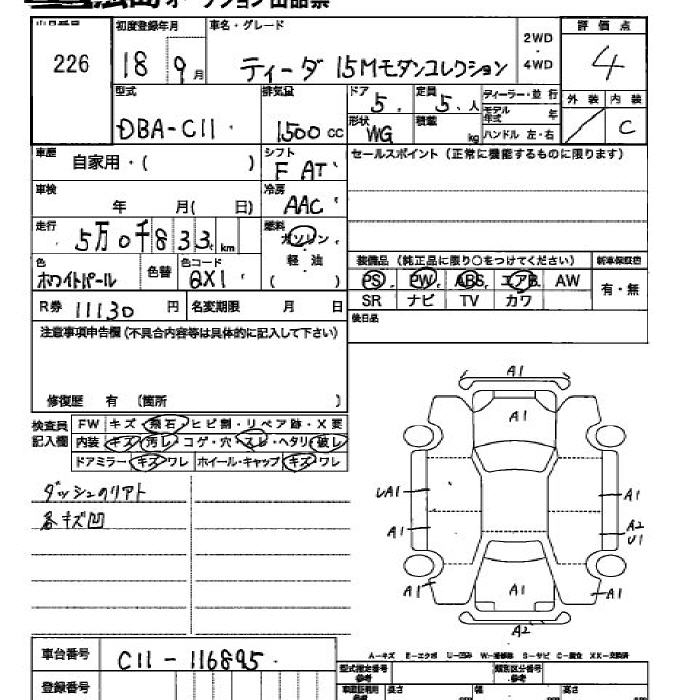 オークション出品票
226
初度登録年月
18 9月
車名・グレード
ティーダ 15Mモダンコレクション
2WD
・
4WD
評価点
4
外装 内装
C
型式
DBA-C11
排気量
1500 cc
ドア
5
定員
5 人
形状
WG
積載
kg
ディーラー・並行
モデル年式 年
ハンドル 左・右
車歴
自家用・( )
シフト
F AT
セールスポイント (正常に機能するものに限ります)
車検
年 月( 日)
冷房
AAC
走行
5万0千833 km
燃料
ガソリン
軽油
( )
色
ホワイトパール
色替
色コード
QX1
装備品 (純正品に限り○をつけてください)
新車保証書
PS PW ABS エアB AW
SR ナビ TV カワ
有・無
R券 11130 円
名変期限 月 日
後日品
注意事項申告欄 (不具合内容等は具体的に記入して下さい)
修復歴 有 (箇所 )
検査員記入欄
FW キズ・飛石・ヒビ割・リペア跡・X要
内装 キズ・汚レ・コゲ・穴・スレ・ヘタリ・破レ
ドアミラー キズ・ワレ ホイール・キャップ キズ・ワレ
ダッシュのリアト
各キズ凹
A1
A1
UA1
A1
A1
A2
U1
A1
A1
A1
A2
A-キズ E-エクボ U-凹み W-補修跡 S-サビ C-腐食 XX-交換済
車台番号
C11-116895
登録番号
型式指定番号
参考
類別区分番号
参考
長さ
幅
高さ